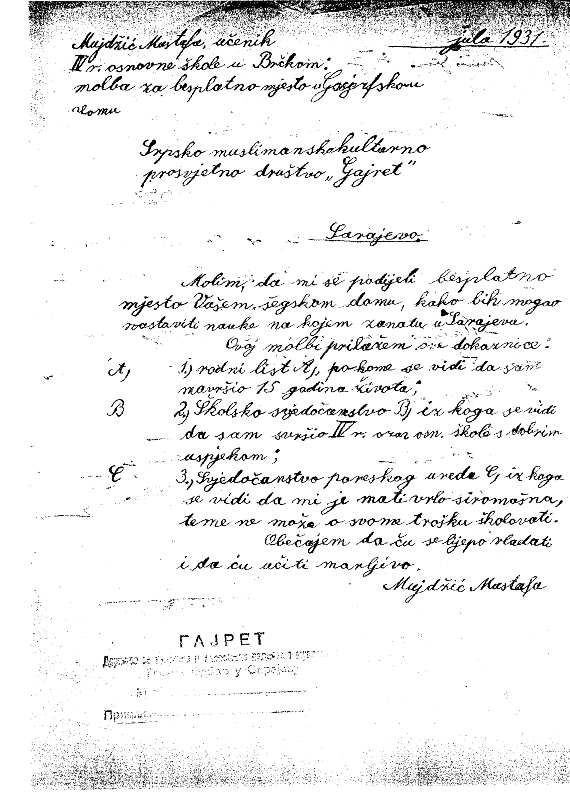 Mujdžić Mustafa, učenik
jula 1931.
IV r. osnovne škole u Brčkom:
molba za besplatno mjesto u Gajretskom
domu
Srpsko muslimansko kulturno
prosvjetno društvo „Gajret"
Sarajevo.
Molim, da mi se podijeli besplatno
mjesto Vašem šegskom domu, kako bih mogao
nastaviti nauke na kojem zanatu u Sarajevu.
Ovoj molbi prilažem ove dokaznice:
A, 1, rodni list A, po kome se vidi da sam
navršio 15 godina života;
B 2, Školsko svjedočanstvo B, iz koga se vidi
da sam svršio IV r. osn. škole s dobrim
uspjehom;
C 3., Svjedočanstvo poreskog ureda C, iz koga
se vidi da mi je mati vrlo siromašna,
te me ne može o svome trošku školovati.
Obećajem da ću se lijepo vladati
i da ću učiti marljivo.
Mujdžić Mustafa
ГАЈРЕТ
у Сарајеву